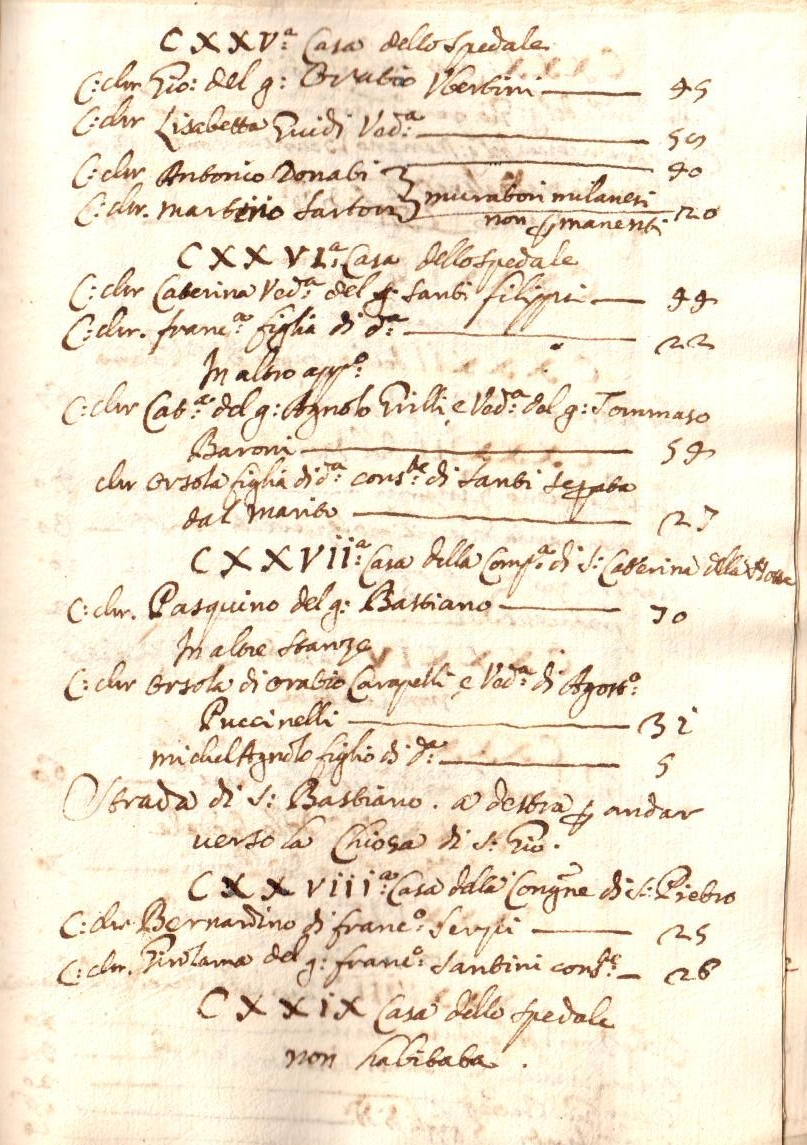 CXXVª: Casa dello spedale
C: chr Gio: del q: Oratio Ubertini — 45
C: chr Lisabetta Guidi Vedª: — 59
C: chr Antonio Donati — 40
C: chr. Martino Sartori — 20
muratori milanesi
non p manenti
CXXVIª: Casa dello spedale
C: chr Caterina Vedª: del q: Santi filippi — 44
C: chr. francª: figlia di dª: — 22
In altro appº:
C: chr Catª: del q: Agnolo Grilli e Vedª: del q: Tommaso
Baroni — 54
chr Orsola figlia di dª: consᵗᵉ: di Santi sepata
dal marito — 27
CXXViiª: Casa della Compª: di S: Catterina della
C: chr. Pasquino del q: Bastiano — 70
In altre stanze
C: chr Orsola di Oratio Carapelli e Vedª: di Agostº:
Puccinelli — 31
michel Agnolo figlio di dª: — 5
Strada di S: Bastiano. a destra p andar
verso la Chiesa di S: Gio.
CXXViiiª: Casa dela Congne di S: Pietro
C: chr Bernardino di francº: Serpi — 25
C: chr. Girolama del q: francº: Santini consᵗᵉ: — 26
CXXiX Casa dello spedale
non habitata.